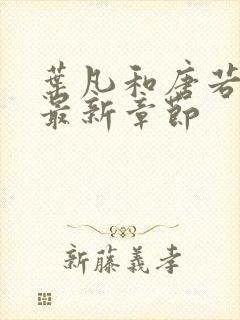 葉凡和唐若
最新章節
新藤義孝